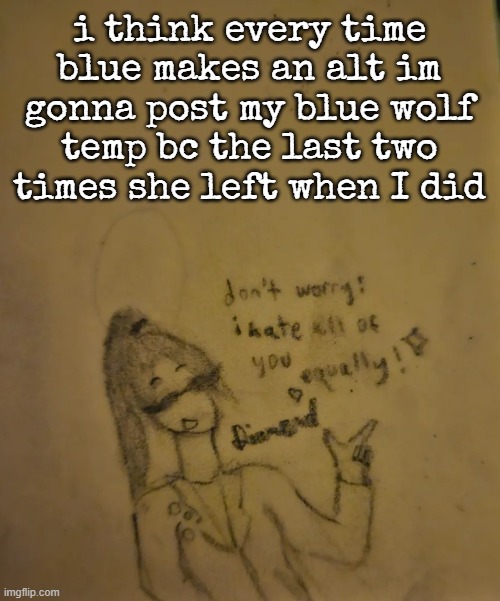 i think every time
blue makes an alt im
gonna post my blue wolf
temp bc the last two
times she left when I did
don't worry!
i hate all of
you equally!
Diamond
imgflip.com